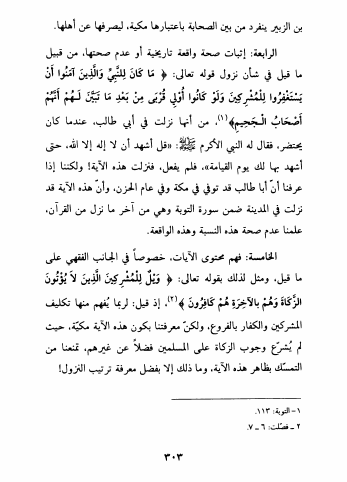 بن الزبير ينفرد من بين الصحابة باعتبارها مكية، ليصرفها عن أهلها.
الرابعة: إثبات صحة واقعة تاريخية أو عدم صحتها، من قبيل
ما قيل في شأن نزول قوله تعالى: ﴿ مَا كَانَ لِلنَّبِيِّ وَالَّذِينَ آمَنُوا أَنْ
يَسْتَغْفِرُوا لِلْمُشْرِكِينَ وَلَوْ كَانُوا أُوْلِي قُرْبَى مِنْ بَعْدِ مَا تَبَيَّنَ لَـهُمْ أَنَّهُمْ
أَصْحَابُ الْـجَحِيمِ﴾(١)، من أنها نزلت في أبي طالب، عندما كان
يحتضر، فقال له النبي الأكرم ﷺ: «قل أشهد أن لا إله إلا الله، حتى
أشهد بها لك يوم القيامة»، فلم يفعل، فنزلت هذه الآية! ولكننا إذا
عرفنا أنّ أبا طالب قد توفي في مكة وفي عام الحزن، وأنّ هذه الآية قد
نزلت في المدينة ضمن سورة التوبة وهي من آخر ما نزل من القرآن،
علمنا عدم صحة هذه النسبة وهذه الواقعة.
الخامسة: فهم محتوى الآيات، خصوصاً في الجانب الفقهي على
ما قيل، ومثل لذلك بقوله تعالى: ﴿ وَيْلٌ لِلْمُشْرِكِينَ الَّذِينَ لاَ يُؤْتُونَ
الزَّكَاةَ وَهُمْ بِالآخِرَةِ هُمْ كَافِرُونَ ﴾(٢)، إذ قيل: لربما يُفهم منها تكليف
المشركين والكفار بالفروع، ولكنّ معرفتنا بكون هذه الآية مكيّة، حيث
لم يُشرّع وجوب الزكاة على المسلمين فضلاً عن غيرهم، تمنعنا من
التمسك بظاهر هذه الآية، وما ذلك إلا بفضل معرفة ترتيب النزول!
١- التوبة: ١١٣.
٢ ـ فصّلت: ٦ ـ ٧.
٣٠٣